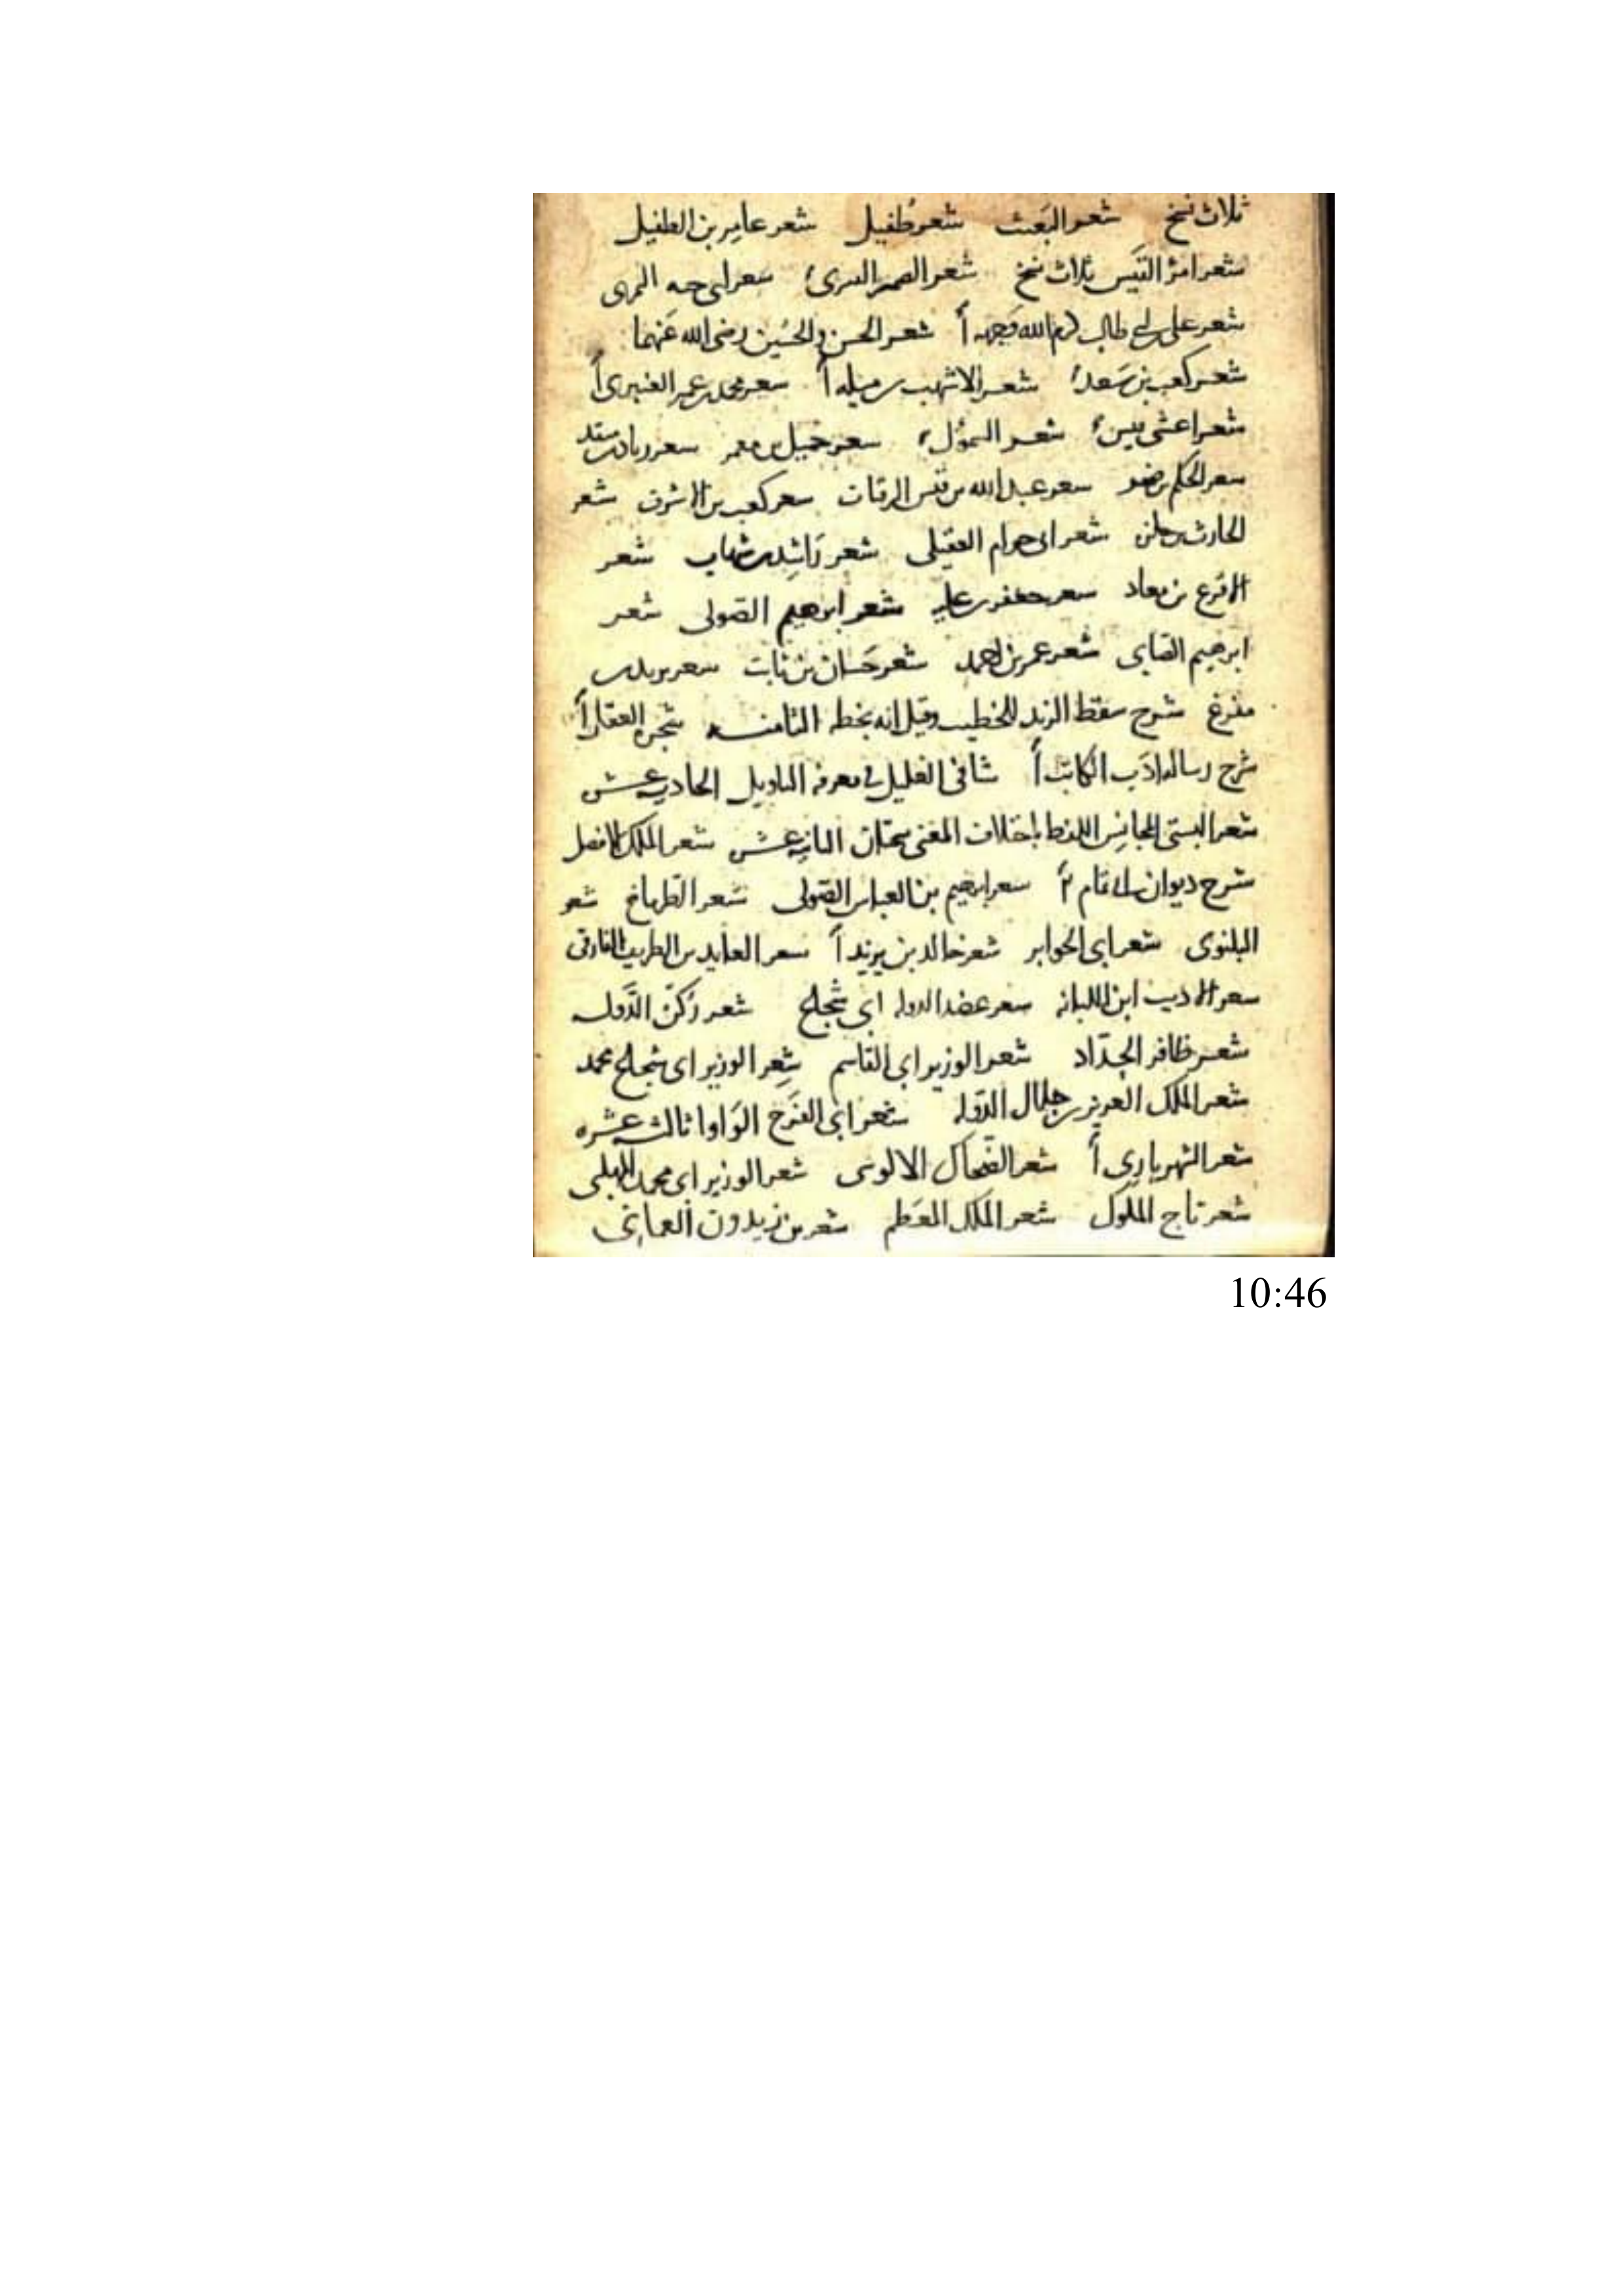 ثلاث نسخ شعر البعيث شعر طُفيل شعر عامِر بن الطفيل
شعر امرؤ القَيس ثلاث نسخ شعر شعر ابى حيه النمرى
شعر على بن ابى طالب كرم الله وَجهه أ شعر الحسن والحُسَين رضى الله عَنهما
شعر كعب بن سَعد شعر الاشهب بن رميله أ شعر محمد بن أ
شعر اعشى شعر السمؤل شعر جميل بن معمر شعر
شعر الحكم بن شعر عبد الله بن قيس الرقيات شعر كعب بن الاشرف شعر
الحارث بن حلزه شعر ابى حزام العقيلى شعر رَاشِد بن شهاب شعر
الاقرع بن معاذ شعر جعفر بن علبه شعر ابرهيم الصولى شعر
ابرهيم الصابى شعر عمر بن احمد شعر حَسان بن ثابت شعر يزيد بن
مفرغ شرح سقط الزند للخطيب وقيل انه بخطه الثامنه شجره العقار أ
شرح رساله ادَب الكاتب أ شافى الغليل فى معرفه التاويل الحاديه عشر
شعر البستى المجانِس اللفظ باختلاف المعنى الثانيه عشر شعر الملك الافضل
شرح ديوان ابى تمام شعر ابرهيم بن العباس الصولى شعر الطرماح شعر
البلنوى شعر ابى الجوابر شعر خالد بن يزيد أ شعر العابد بن الطريف الفارقى
شعر الاديب ابن اللبانه شعر عضد الدوله ابى شجاع شعر رُكن الدَّوله
شعر ظافر الحدّاد شعر الوزير ابى القاسم شِعر الوزير ابى شجاع محمد
شعر الملك العزيز بن جلال الدوله شعر ابى الفرَج الوَاوا ثالثه عشره
شعر الشهريارى أ شعر الضحاك الالوسى شعر الوزير ابى محمد المهلبى
شعر تاج الملوك شعر الملك المعَظم شعر بن زيدون العمانى
10:46